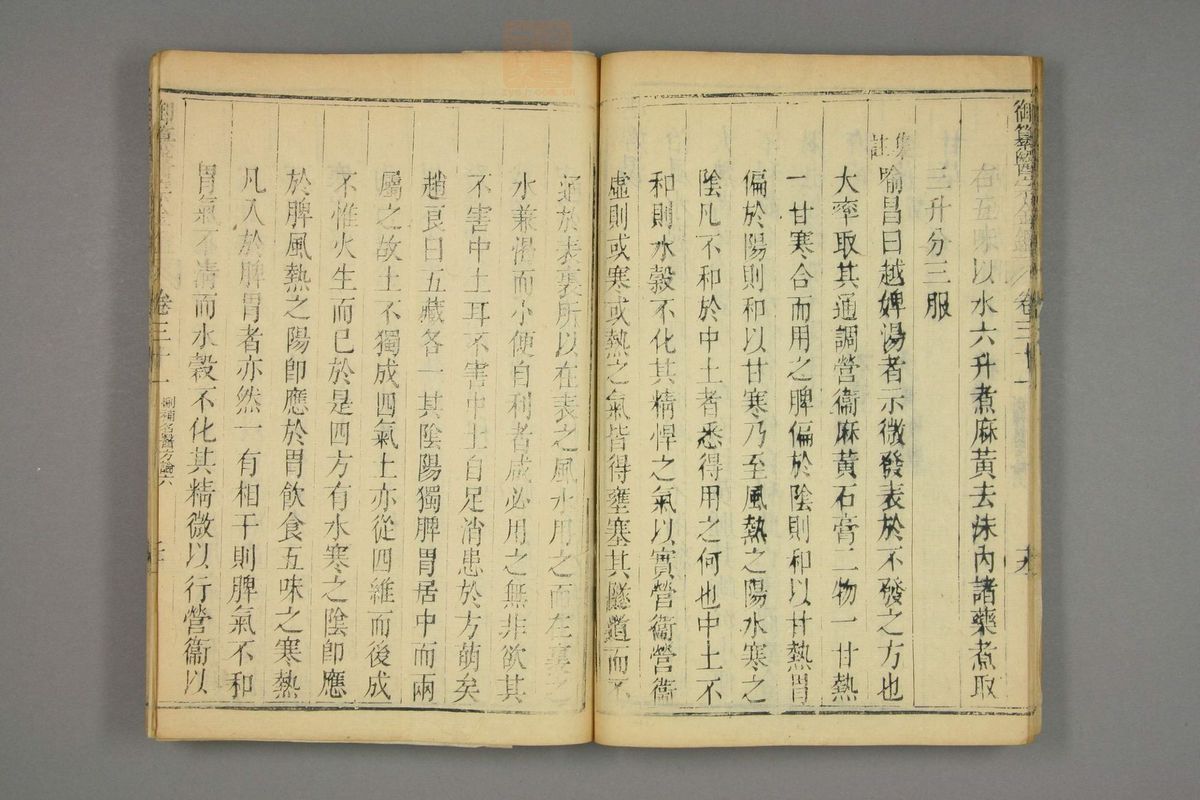 御纂醫宗金鑑
卷三十一
右五味以水六升煮麻黃去沫內諸藥煮取
三升分三服
集註
喻昌曰越婢湯者示微發表於不發之方也
大率取其通調營衞麻黃石膏二物一甘熱
一甘寒合而用之脾偏於陰則和以甘熱胃
偏於陽則和以甘寒乃至風熱之陽水寒之
陰凡不和於中土者悉得用之何也中土不
和則水穀不化其精悍之氣以實營衞營衞
虛則或寒或熱之氣皆得壅塞其隧道而不
通於表裏所以在表之風水用之而在裏之
水兼渴而小便自利者咸必用之無非欲其
不害中土耳不害中土自足消患於方萌矣
趙良曰五藏各一其陰陽獨脾胃居中而兩
屬之故土不獨成四氣土亦從四維而後成
不惟火生而巳於是四方有水寒之陰卽應
於脾風熱之陽卽應於胃飮食五味之寒熱
凡入於脾胃者亦然一有相干則脾氣不和
胃氣不清而水穀不化其精微以行營衞以
卷三十一
刪補名醫方論六